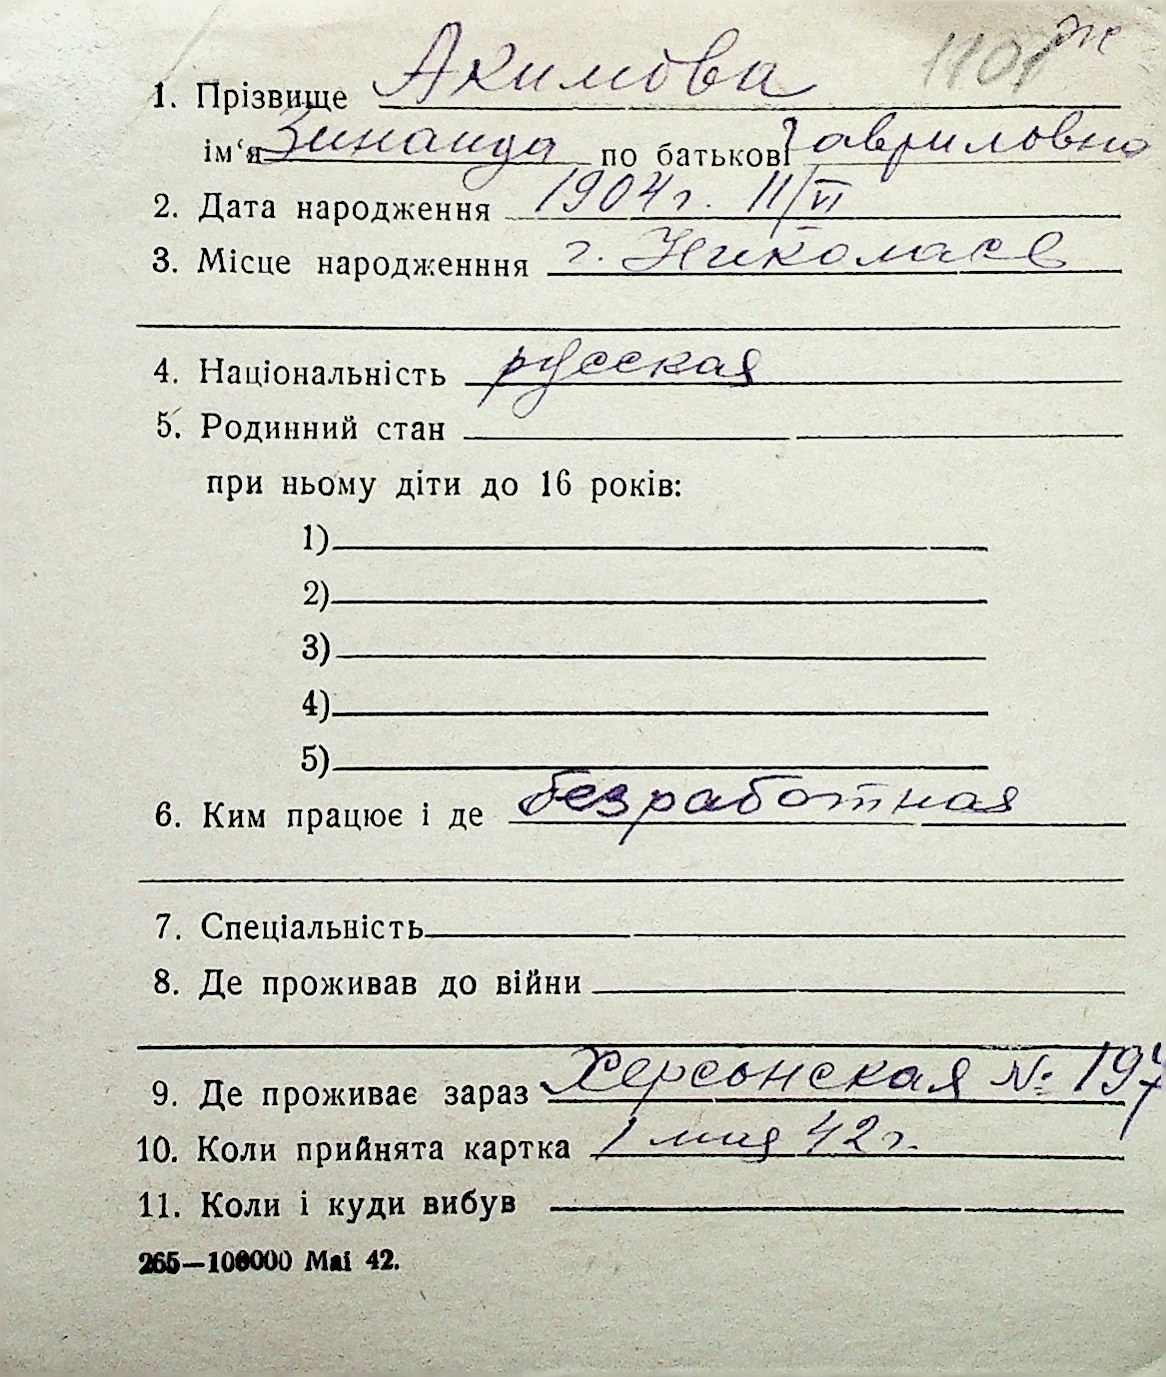 1101 ж
1. Прізвище Акимова
ім'я Зинаида по батькові Гавриловна
2. Дата народження 1904 г. 11/VI
3. Місце народженння г. Николаев
4. Національність русская
5. Родинний стан
при ньому діти до 16 років:
1)
2)
3)
4)
5)
6. Ким працює і де безработная
7. Спеціальність
8. Де проживав до війни
9. Де проживає зараз Херсонская № 197
10. Коли прийнята картка 1 мая 42 г.
11. Коли і куди вибув
265—100000 Mai 42.